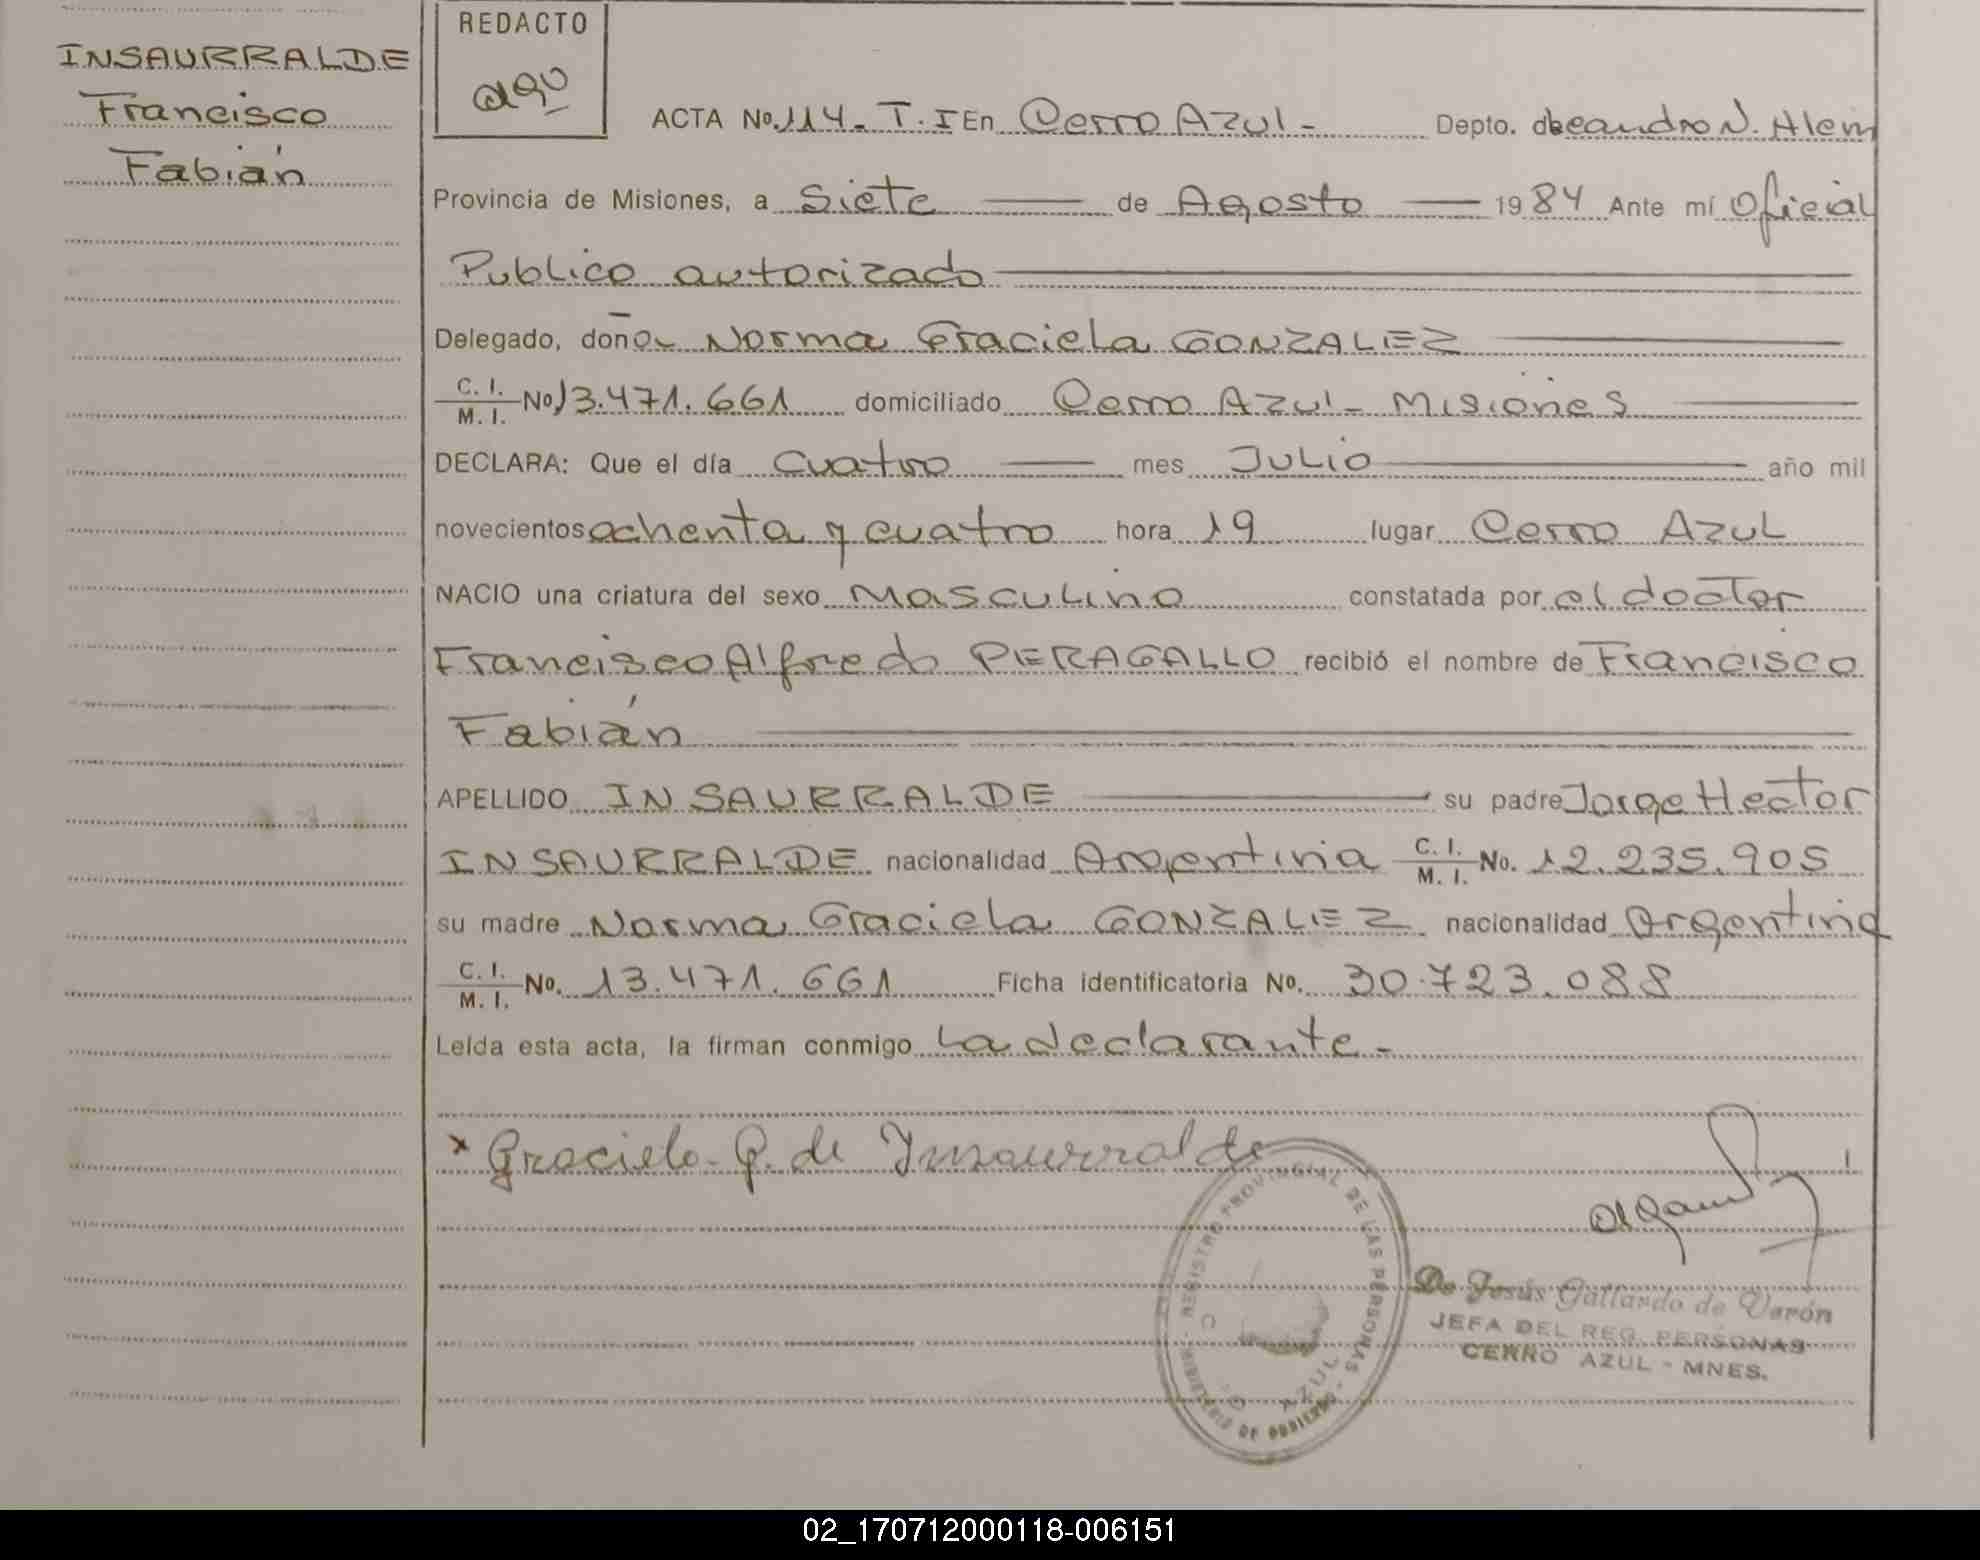 INSAURRALDE
Francisco
Fabián
REDACTO
ACTA No. 114 - T. I En Cerro Azul - Depto. de Leandro N. Alem
Provincia de Misiones, a Siete de Agosto 1984 Ante mí Oficial
Publico autorizado
Delegado, doña Norma Graciela GONZALEZ
C. I.
M. I. No. 13.471.661 domiciliado Cerro Azul - Misiones
DECLARA: Que el día cuatro mes Julio año mil
novecientos ochenta y cuatro hora 19 lugar Cerro Azul
NACIO una criatura del sexo Masculino constatada por el doctor
Francisco Alfredo PERAGALLO recibió el nombre de Francisco
Fabián
APELLIDO INSAURRALDE su padre Jorge Hector
INSAURRALDE nacionalidad Argentina C. I. M. I. No. 12.235.905
su madre Norma Graciela GONZALEZ nacionalidad Argentina
C. I.
M. I. No. 13.471.661 Ficha identificatoria No. 30.723.088
Leída esta acta, la firman conmigo La declarante -
x Graciela G. de Insaurralde
REGISTRO PROVINCIAL DE LAS PERSONAS - MINISTERIO DE GOBIERNO -
AZUL
De Jesús Gallardo de Verón
JEFA DEL REG. PERSONAS
CERRO AZUL - MNES.
02_170712000118-006151